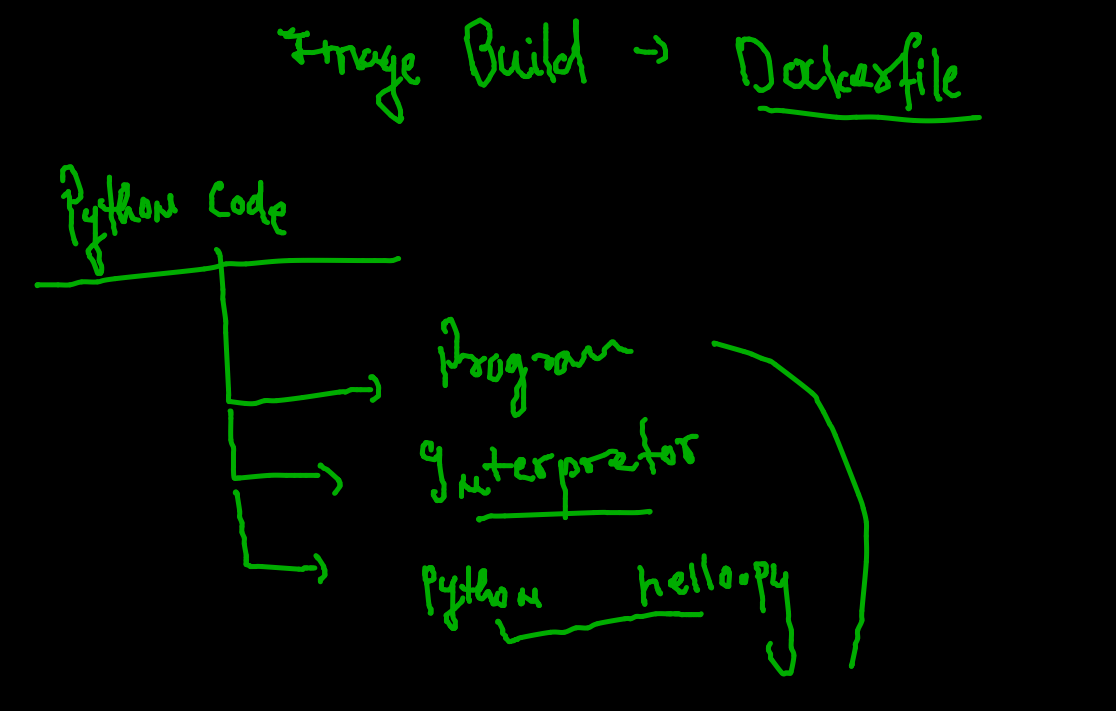 Image Build → Dockerfile
Python Code
Program
Interpretor
Python hello.py